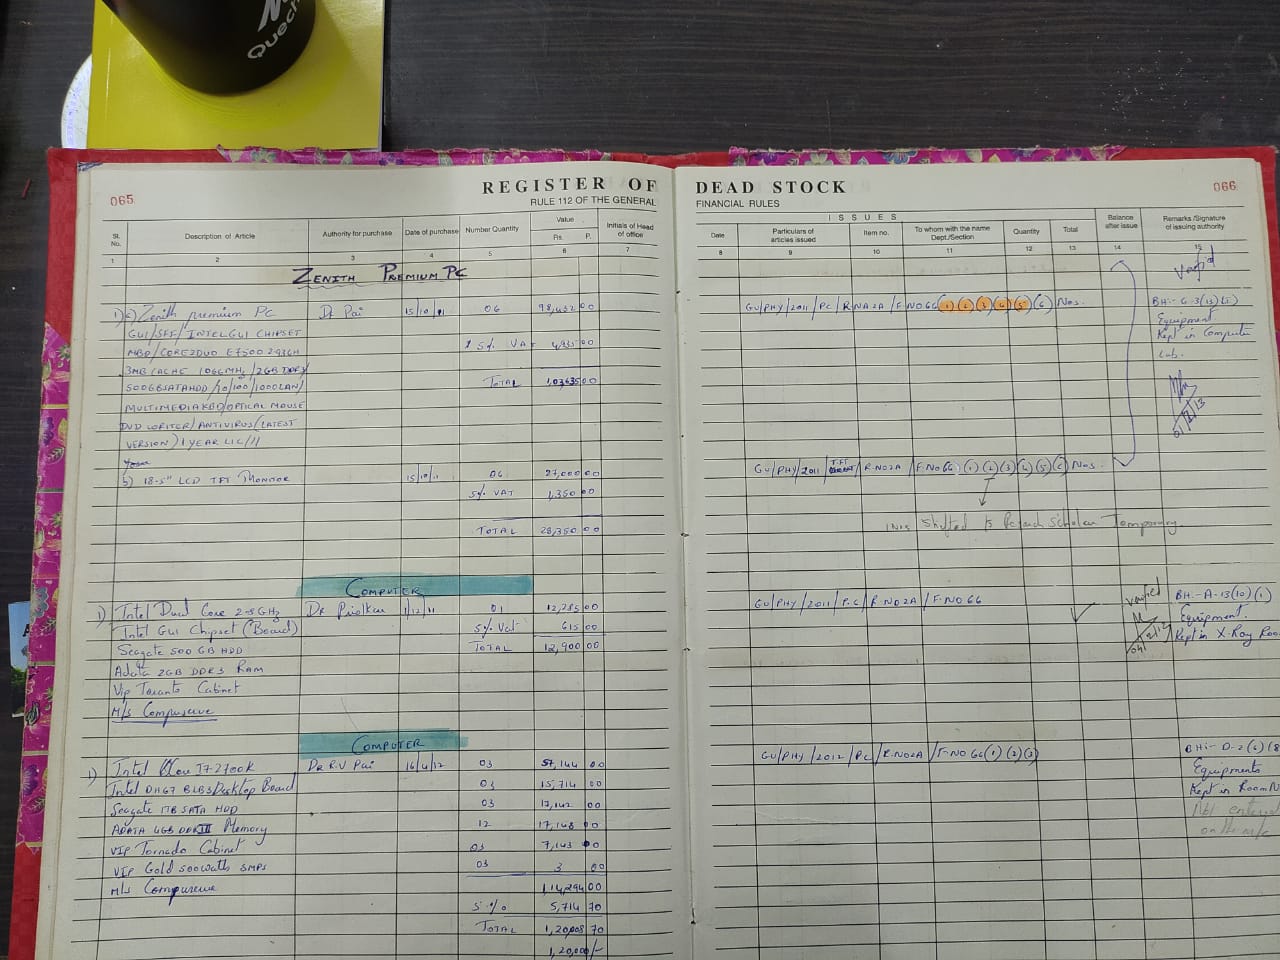 Quech
065
REGISTER OF DEAD STOCK
066
RULE 112 OF THE GENERAL FINANCIAL RULES
Sl. No. Description of Article Authority for purchase Date of purchase Number Quantity Value Rs. P. Initials of Head of office
ISSUES
Date Particulars of articles issued Item no. To whom with the name Dept./Section Quantity Total Balance after issue Remarks /Signature of issuing authority
1 2 3 4 5 6 7 8 9 10 11 12 13 14 15
ZENITH PREMIUM PC
verified
1) a) Zenith premium PC Dr Pai 15/10/11 06 00
GU/PHY/2011/PC/R.NO2A/F.NO66(1)(2)(3)(4)(5)(6) Nos.
GUI/SFF/INTELGUI CHIPSET
Equipment
MBD/CORE2DUO E7500 2.93GH 5% VAT 00
Kept in Computer
Lab.
3MB CACHE 1066MHz/2GB DDR3/
500GBSATAHDD/10/100/1000LAN/ TOTAL 1,03,635 00
MULTIMEDIAKBD/OPTICAL MOUSE
DVD WRITER/ANTIVIRUS(LATEST
VERSION) 1 YEAR LIC//
b) 18.5" LCD TFT MONITOR 15/10/11 06 27,000 00
GU/PHY/2011/ /R.NO2A/F.NO66(1)(2)(3)(4)(5)(6) Nos.
5% VAT 1,350 00
TOTAL 28,350 00
1No. Shifted to Scholar Temporary.
COMPUTER
1) Intel Dual Core 2.8GHz Dr Priolkar 1/12/11 01 12,285 00
GU/PHY/2011/P.C/R.NO2A/F.NO66
verified
BH:-A-13(10)(1)
Intel GUI Chipset (Board) 5% Vat 615 00
Equipment.
Seagate 500 GB HDD TOTAL 12,900 00
Kept in X-Ray Roo
Adata 2GB DDR3 RAM
Vip Taranto Cabinet
M/s Compuserve
COMPUTER
1) Intel I7-2700K Dr R.V Pai 16/4/12 03 57,144 00
GU/PHY/2012/PC/R.NO2A/F.NO66(1)(2)(3)
Intel DH67 BLB3 Desktop Board 03 15,714 00
Equipments
Seagate 1TB SATA HDD 03 17,142 00
Kept in Room N
ADATA 4GB DDRIII Memory 12 17,143 00
Not entered
on the
VIP Tornado Cabinet 03 7,143 00
VIP Gold 500watts SMPS 03 3 00
M/s Compuserve 1,14,294 00
5% 5,714 70
TOTAL 1,20,008 70
1,20,000/-